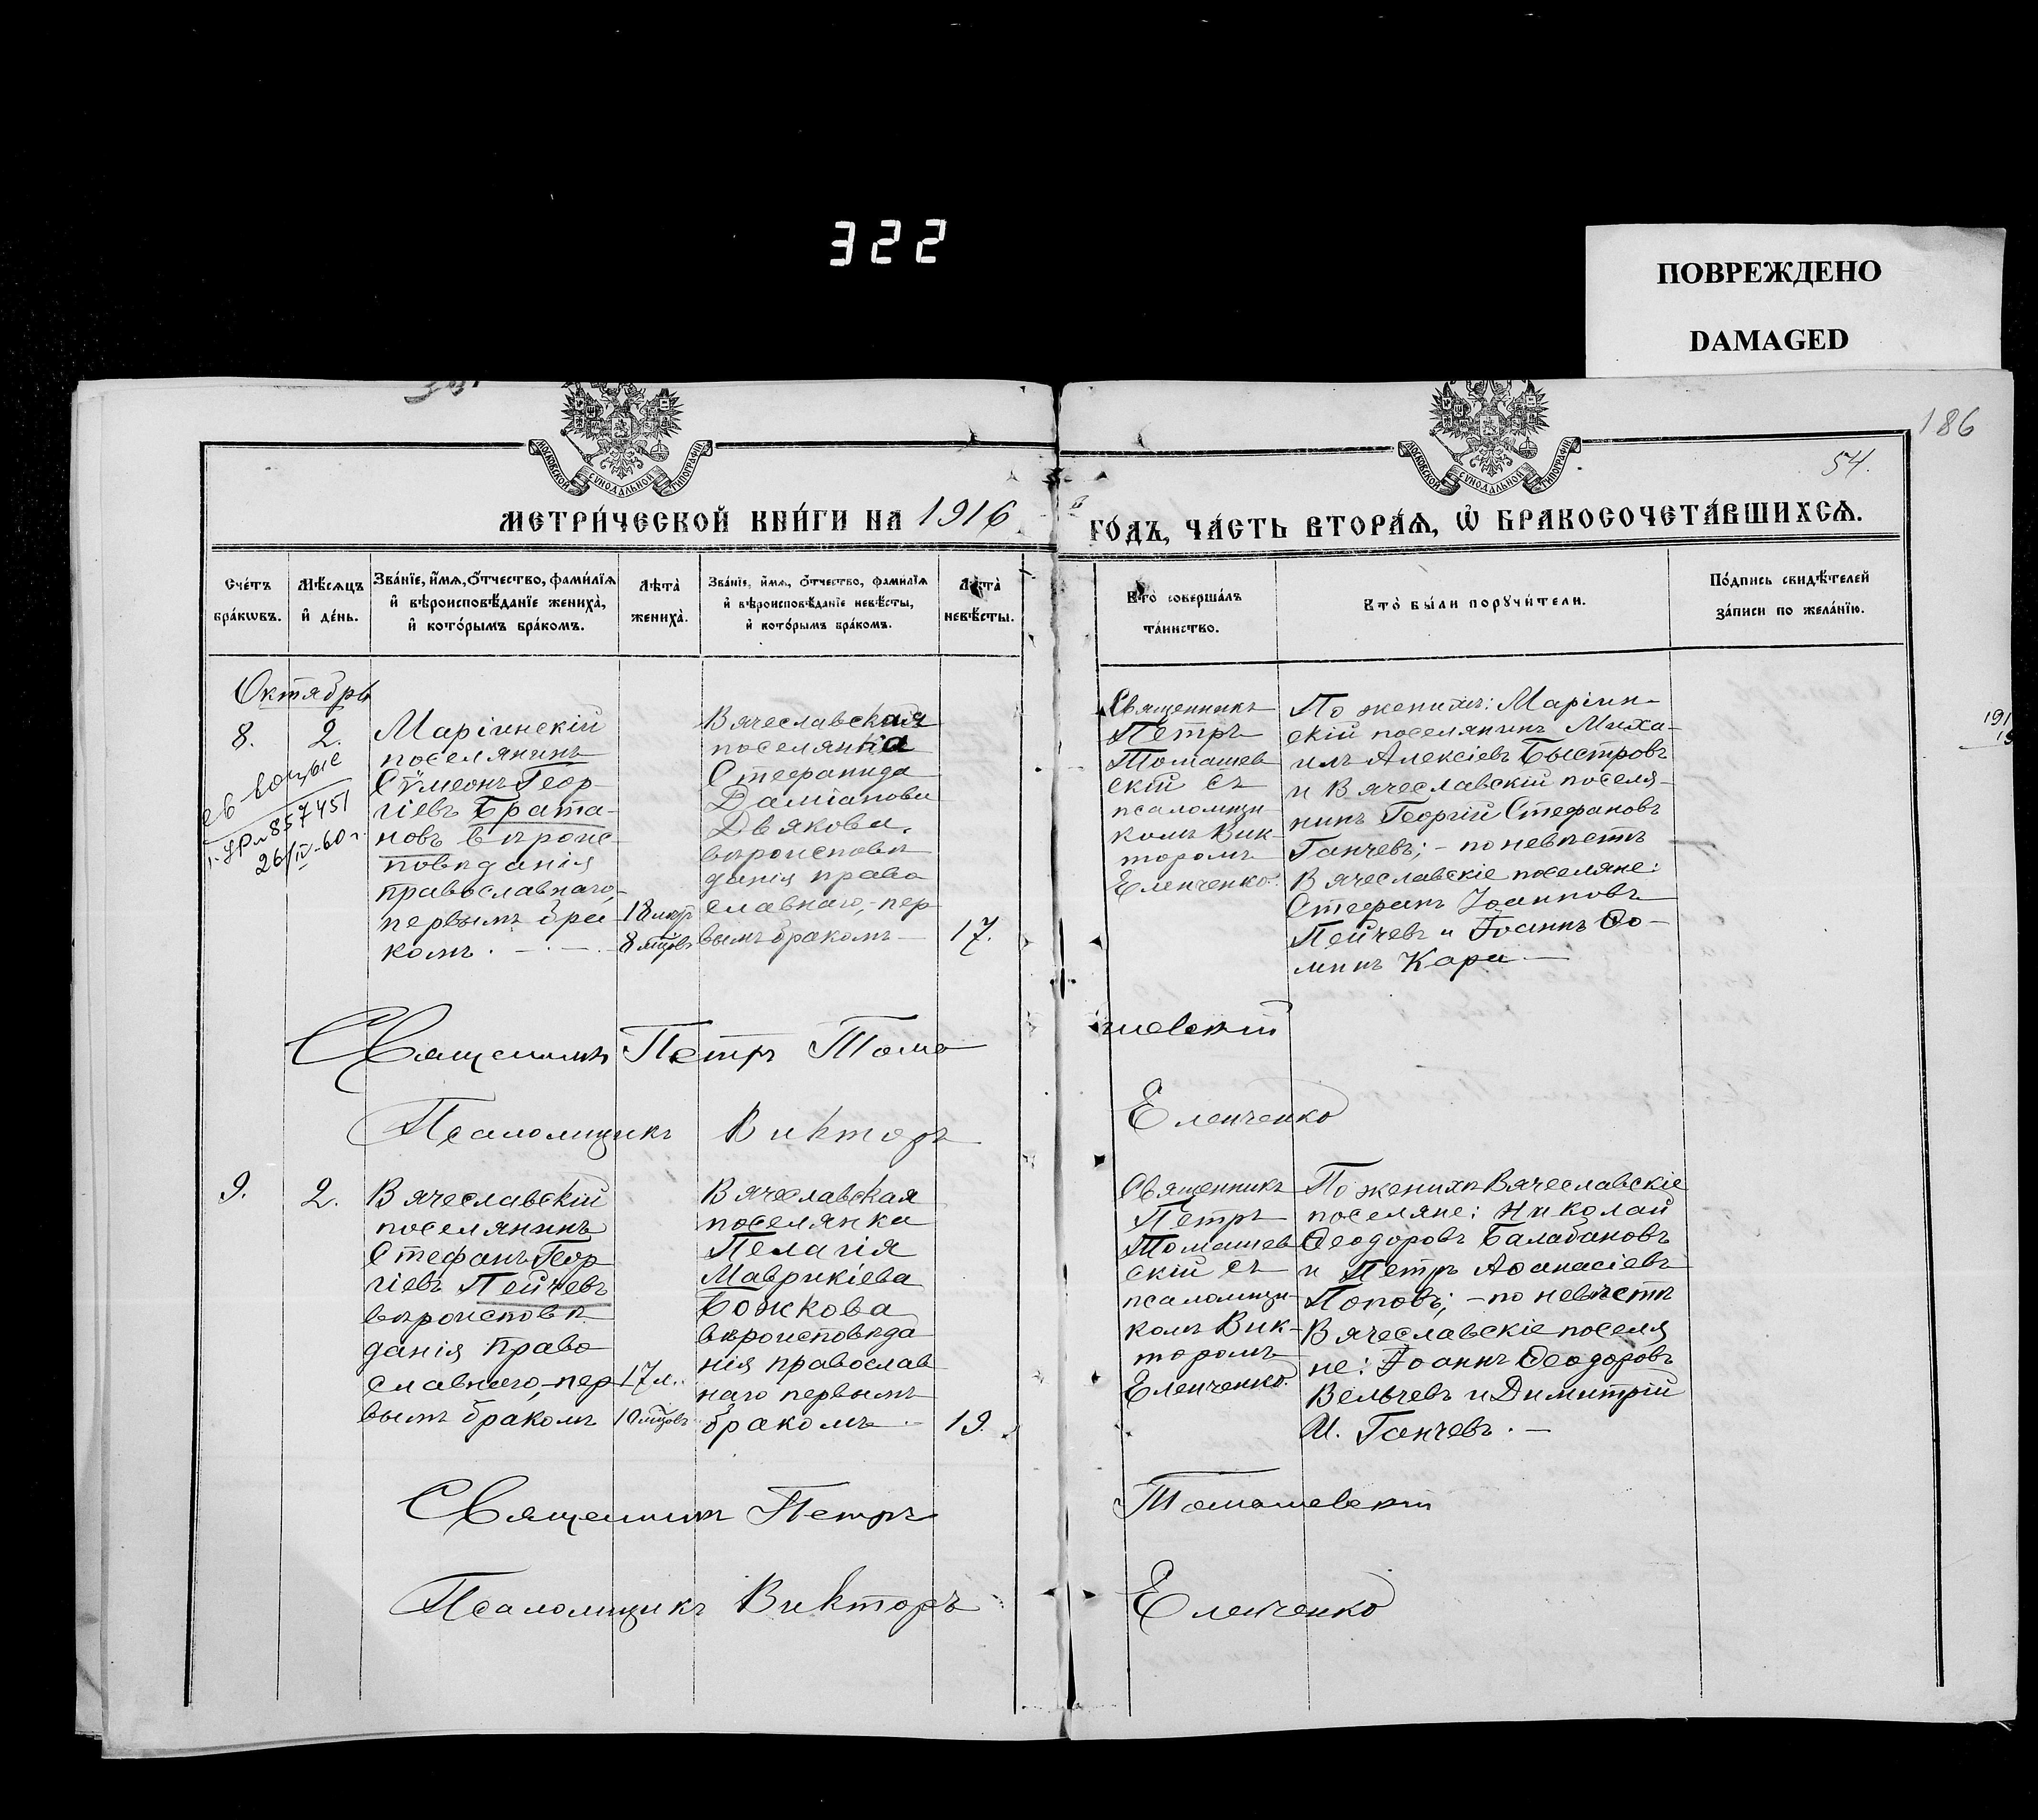 322
ПОВРЕЖДЕНО
DAMAGED
186
54.
МОСКОВСКОЙ СУНОДАЛЬНОЙ ТИПОГРАФІИ
МОСКОВСКОЙ СУНОДАЛЬНОЙ ТИПОГРАФІИ
МЕТРИ́ЧЕСКОЙ КНИ́ГИ НА 1916
ГО́ДЪ, ЧА́СТЬ ВТОРА́Ѧ, Ѡ҆ БРАКОСОЧЕТА́ВШИХСѦ.
Сче́тъ
бра́кѡвъ.
Мѣ́сѧцъ
и҆ де́нь.
Зва́нїе, и҆́мѧ, ѻ҆́тчество, фами́лїѧ
и҆ вѣроисповѣ́данїе жениха̀,
и҆ кото́рымъ бра́комъ.
Лѣта̀
жениха̀.
Зва́нїе, и҆́мѧ, ѻ҆́тчество, фами́лїѧ
и҆ вѣроисповѣ́данїе невѣ́сты,
и҆ кото́рымъ бра́комъ.
Лѣта̀
невѣ́сты.
Кто̀ соверша́лъ
та́инство.
Кто̀ бы́ли порꙋчи́тели.
По́дпись свидѣ́телей
за́писи по жела́нїю.
Октябрь
8.
2.
857451
26/IV-60 г.
Маріинскій
поселянинъ
Сѵмеонъ Геор
гіевъ Брата-
новъ вѣроис-
повѣданія
православнаго,-
первымъ бра
комъ.
18 лѣтъ
8 мцовъ
Вячеславская
поселянка
Стефанида
Даміанова
Дьякова,
вѣроисповѣ
данія право
славнаго,-пер
вымъ бракомъ
17.
Священникъ
Петръ
Томашев
скій съ
псаломщи
комъ Вик-
торомъ
Еленченко.
По женихѣ: Маріин-
скій поселянинъ Миха-
илъ Алексіевъ Быстровъ
и Вячеславскій поселя-
нинъ Георгій Стефановъ
Ганчевъ; - по невѣстѣ
Вячеславскіе поселяне:
Стефанъ Іоанновъ
Пейчевъ и Іоаннъ Ѳо-
минъ Кара
Священникъ Петръ Тома
шевскій
Псаломщикъ Викторъ
Еленченко
9.
2.
Вячеславскій
поселянинъ
Стефанъ Геор
гіевъ Пейчевъ
вѣроисповѣ
данія право
славнаго,-пер
вымъ бракомъ
17 л.
10 мцовъ
Вячеславская
поселянка
Пелагія
Маврикіева
Божкова
вѣроисповѣда
нія православ
наго первымъ
бракомъ
19.
Священникъ
Петръ
Томашев
скій съ
псаломщи-
комъ Вик-
торомъ
Еленченко.
По женихѣ Вячеславскіе
поселяне: Николай
Ѳеодоровъ Балабановъ
и Петръ Аѳанасіевъ
Поповъ; - по невѣстѣ
Вячеславскіе поселя
не: Іоаннъ Ѳеодоровъ
Вельчевъ и Димитрій
И. Ганчевъ.
Священникъ Петръ
Томашевскій
Псаломщикъ Викторъ
Еленченко